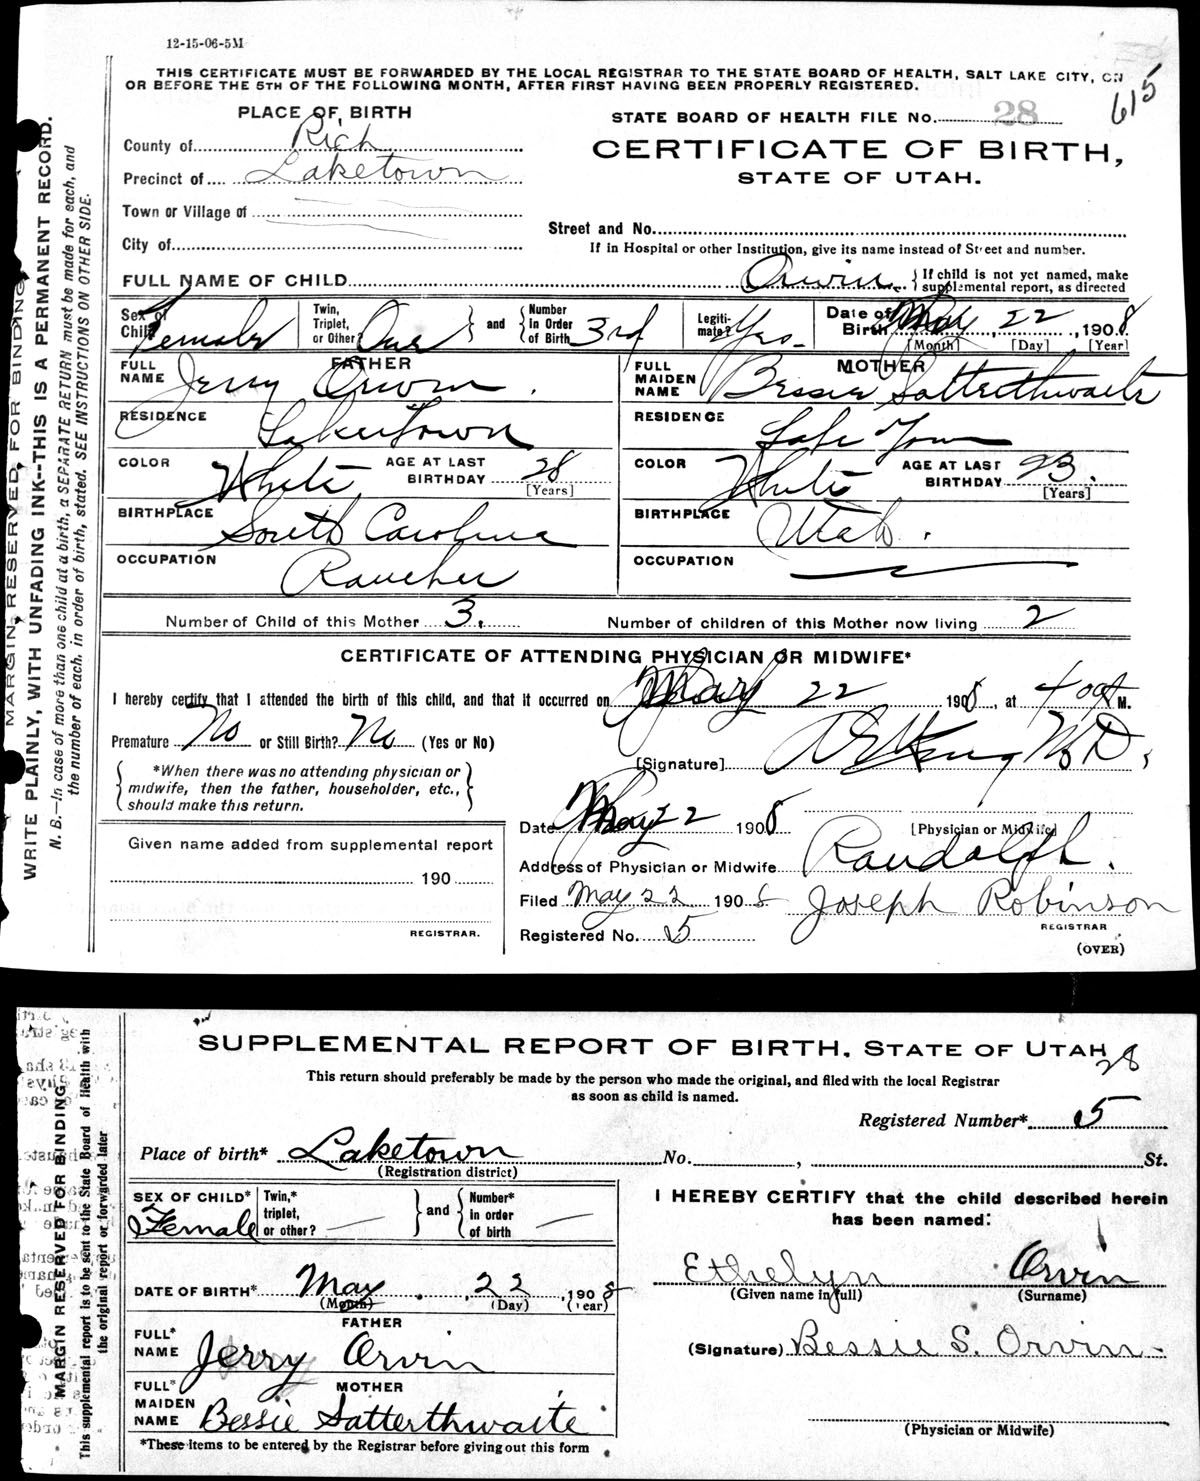 12-15-06-5M
THIS CERTIFICATE MUST BE FORWARDED BY THE LOCAL REGISTRAR TO THE STATE BOARD OF HEALTH, SALT LAKE CITY, ON
OR BEFORE THE 5TH OF THE FOLLOWING MONTH, AFTER FIRST HAVING BEEN PROPERLY REGISTERED.
615
PLACE OF BIRTH
STATE BOARD OF HEALTH FILE No. 28
County of Rich
CERTIFICATE OF BIRTH,
Precinct of Laketown
STATE OF UTAH.
Town or Village of
Street and No.
City of
If in Hospital or other Institution, give its name instead of Street and number.
FULL NAME OF CHILD Orvin
If child is not yet named, make
supplemental report, as directed
Sex of Child Female
Twin, Triplet, or Other? One and Number in Order of Birth 3rd
Legitimate? Yes
Date of Birth May 22, 1908
[Month] [Day] [Year]
FATHER
MOTHER
FULL NAME Jerry Orvin
FULL MAIDEN NAME Bessie Satterthwaite
RESIDENCE Laketown
RESIDENCE Lake Town
COLOR White AGE AT LAST BIRTHDAY 28 [Years]
COLOR White AGE AT LAST BIRTHDAY 23 [Years]
BIRTHPLACE South Carolina
BIRTHPLACE Utah
OCCUPATION Rancher
OCCUPATION
Number of Child of this Mother 3. Number of children of this Mother now living 2
CERTIFICATE OF ATTENDING PHYSICIAN OR MIDWIFE*
I hereby certify that I attended the birth of this child, and that it occurred on May 22 1908, at M.
Premature No or Still Birth? No (Yes or No)
[Signature] M.D.
*When there was no attending physician or
midwife, then the father, householder, etc.,
should make this return.
Date May 22 1908
[Physician or Midwife]
Given name added from supplemental report
Address of Physician or Midwife Randolph.
190
Filed May 22 1908 Joseph Robinson
REGISTRAR
REGISTRAR.
Registered No. 5
(OVER)
MARGIN RESERVED FOR BINDING
WRITE PLAINLY, WITH UNFADING INK--THIS IS A PERMANENT RECORD.
N. B.—In case of more than one child at a birth, a SEPARATE RETURN must be made for each, and
the number of each, in order of birth, stated. SEE INSTRUCTIONS ON OTHER SIDE.
SUPPLEMENTAL REPORT OF BIRTH, STATE OF UTAH
28
This return should preferably be made by the person who made the original, and filed with the local Registrar
as soon as child is named.
Registered Number* 5
Place of birth* Laketown No. , St.
(Registration district)
SEX OF CHILD* Female
Twin,* triplet, or other? and Number* in order of birth
I HEREBY CERTIFY that the child described herein
has been named:
Ethelyn Orvin
(Given name in full) (Surname)
DATE OF BIRTH* May 22, 1908
(Month) (Day) (Year)
FATHER
FULL* NAME Jerry Orvin
(Signature) Bessie S. Orvin
MOTHER
FULL* MAIDEN NAME Bessie Satterthwaite
(Physician or Midwife)
*These items to be entered by the Registrar before giving out this form
MARGIN RESERVED FOR BINDING
This supplemental report is to be sent to the State Board of Health with
the original report or forwarded later